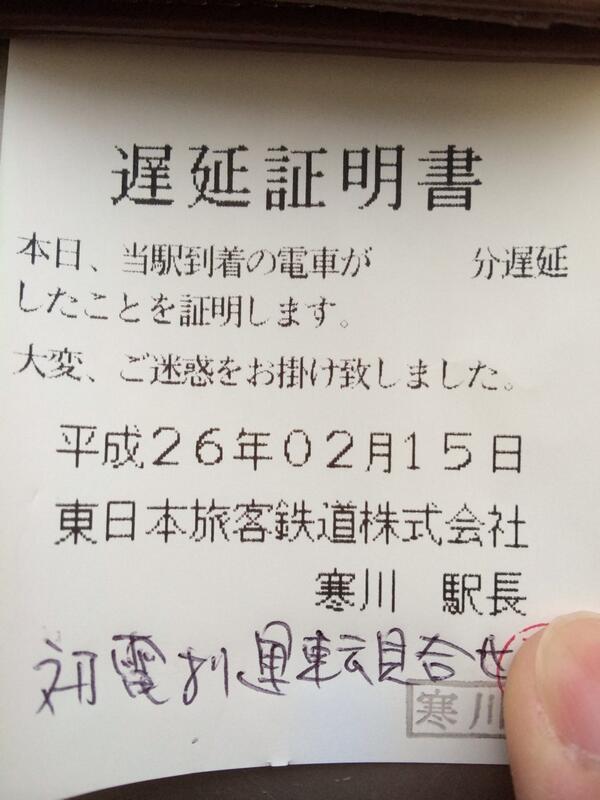 遅延証明書
本日、当駅到着の電車が　　　分遅延
したことを証明します。
大変、ご迷惑をお掛け致しました。
平成２６年０２月１５日
東日本旅客鉄道株式会社
寒川　駅長
初電より運転見合せ
寒川